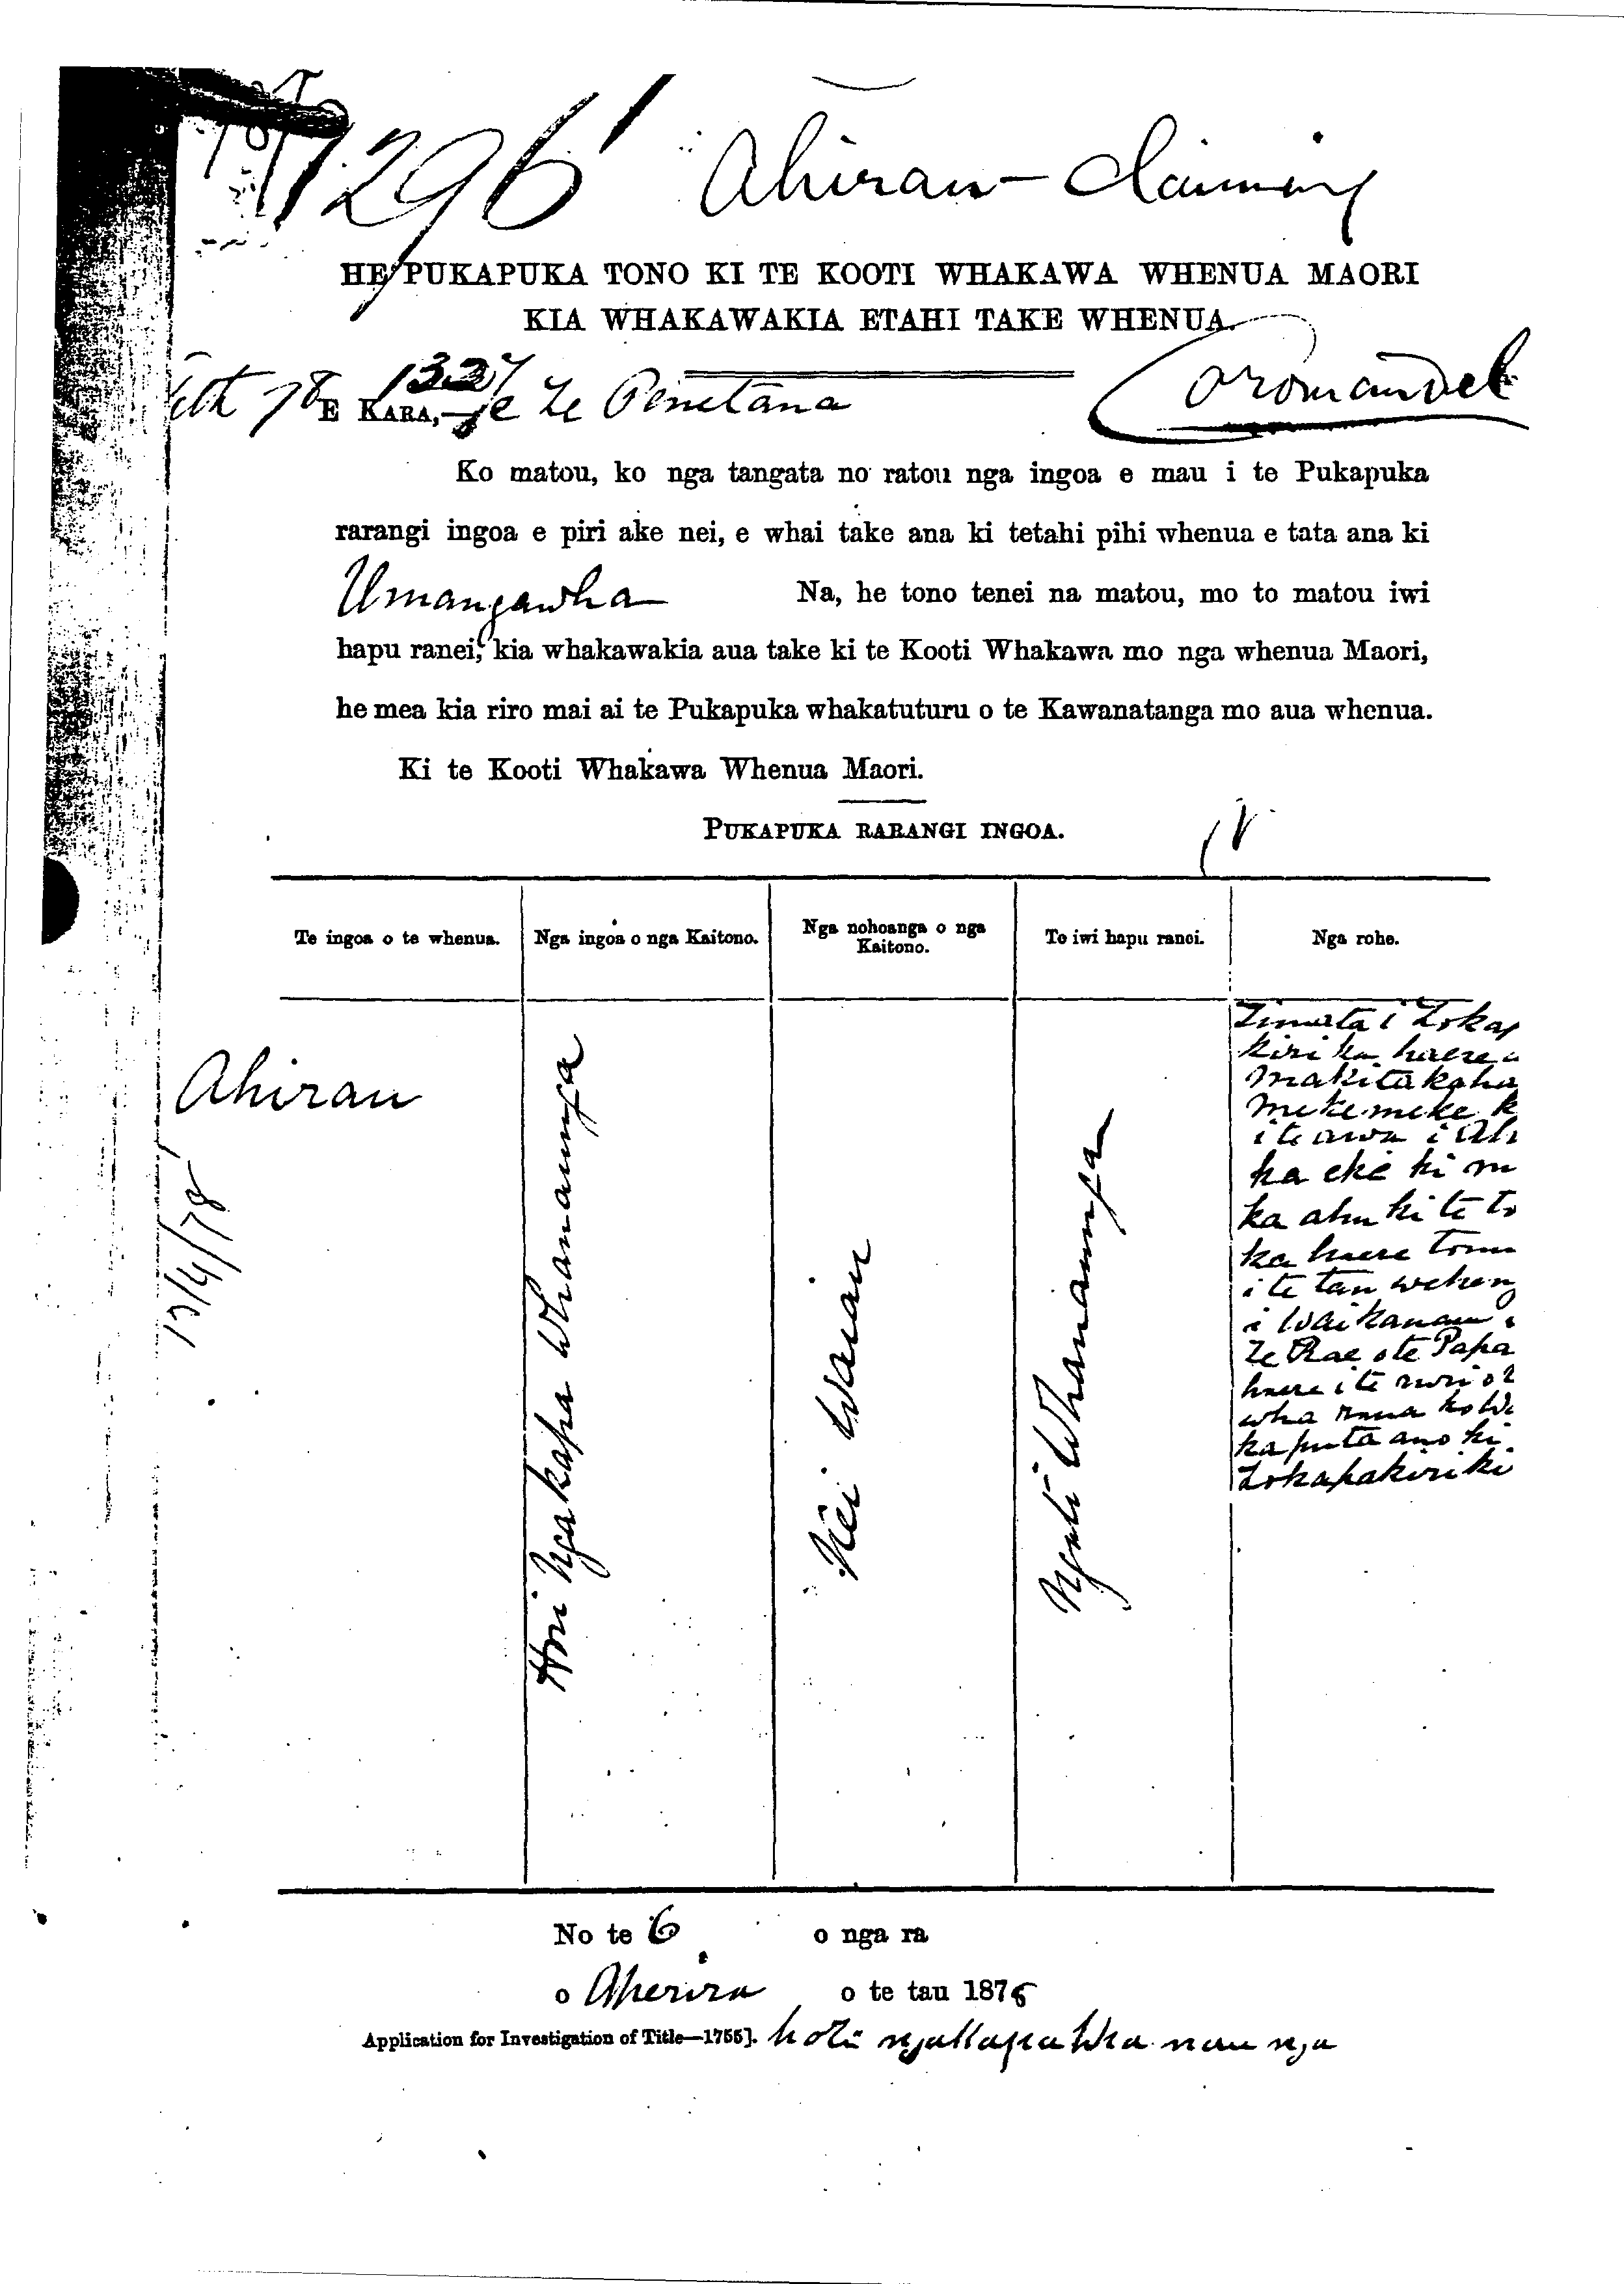 1296 Ahirau - claiming
HE PUKAPUKA TONO KI TE KOOTI WHAKAWA WHENUA MAORI
KIA WHAKAWAKIA ETAHI TAKE WHENUA.
Coromandel
E KARA,— e te Penetana
Ko matou, ko nga tangata no ratou nga ingoa e mau i te Pukapuka
rarangi ingoa e piri ake nei, e whai take ana ki tetahi pihi whenua e tata ana ki
Umangawha Na, he tono tenei na matou, mo to matou iwi
hapu ranei, kia whakawakia aua take ki te Kooti Whakawa mo nga whenua Maori,
he mea kia riro mai ai te Pukapuka whakatuturu o te Kawanatanga mo aua whenua.
Ki te Kooti Whakawa Whenua Maori.
PUKAPUKA RARANGI INGOA.
Te ingoa o te whenua.
Nga ingoa o nga Kaitono.
Nga nohoanga o nga
Kaitono.
To iwi hapu ranei.
Nga rohe.
Ahirau
13/4/78
Hori Ngakapa Whanaunga
Waiau
Ngati Whanaunga
Timata i Tokap
kiri ka haere
makitakaha
mekemeke k
i te awa i Ah
ka eke ki m
ka ahu ki te to
ka haere tonu
i te tau wehen
i Waikanau
Te Rae o te Papa
haere i te
wha
ka puta ano ki
Tokapakiriki
No te 6 o nga ra
o Aperira o te tau 1878
Application for Investigation of Title—1755].